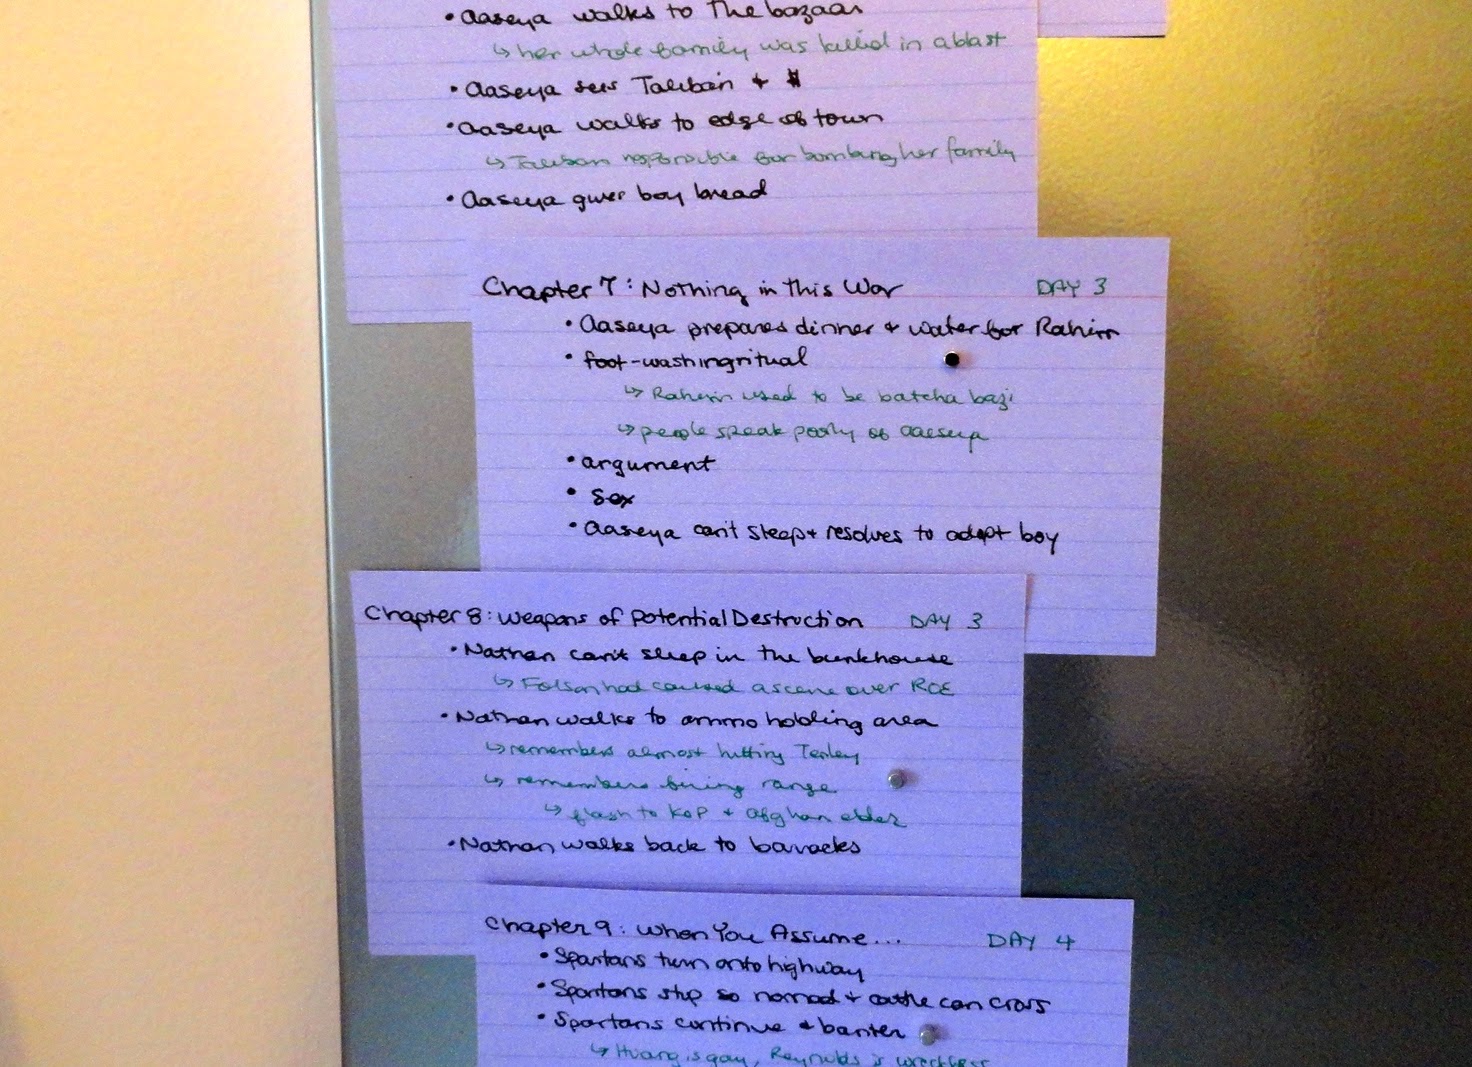 • Aaseya walks to The bazaar
↳ her whole family was killed in a blast
• Aaseya sees Taliban +
• Aaseya walks to edge of town
↳ Taliban responsible for bombing her family
• Aaseya gives boy bread
Chapter 7: Nothing in this War DAY 3
• Aaseya prepares dinner + water for Rahim
• foot-washing ritual
↳ Rahim used to be batcha bazi
↳ people speak poorly of Aaseya
• argument
• Sex
• Aaseya can't sleep + resolves to adopt boy
Chapter 8: Weapons of Potential Destruction DAY 3
• Nathan can't sleep in the bunkhouse
↳ Folson had caused a scene over ROE
• Nathan walks to ammo holding area
↳ remembers almost hitting Tenley
↳ remembers firing range
↳ flash to KOP + Afghan elder
• Nathan walks back to barracks
Chapter 9: When You Assume... DAY 4
• Spartans turn onto highway
• Spartans stop so nomad + cattle can cross
• Spartans continue + banter
↳ Huang is gay, Reynolds is wreckless